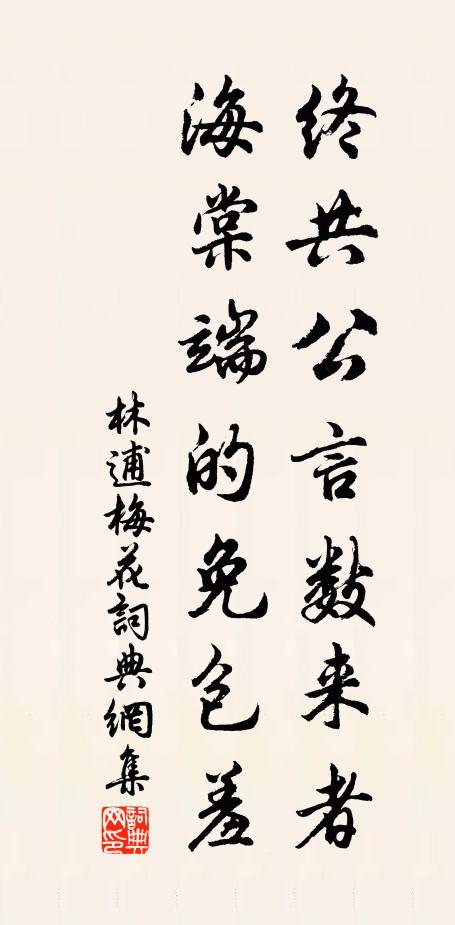 终共公言数来者
海棠端的免包羞
林逋梅花詞典網集
詞典网印